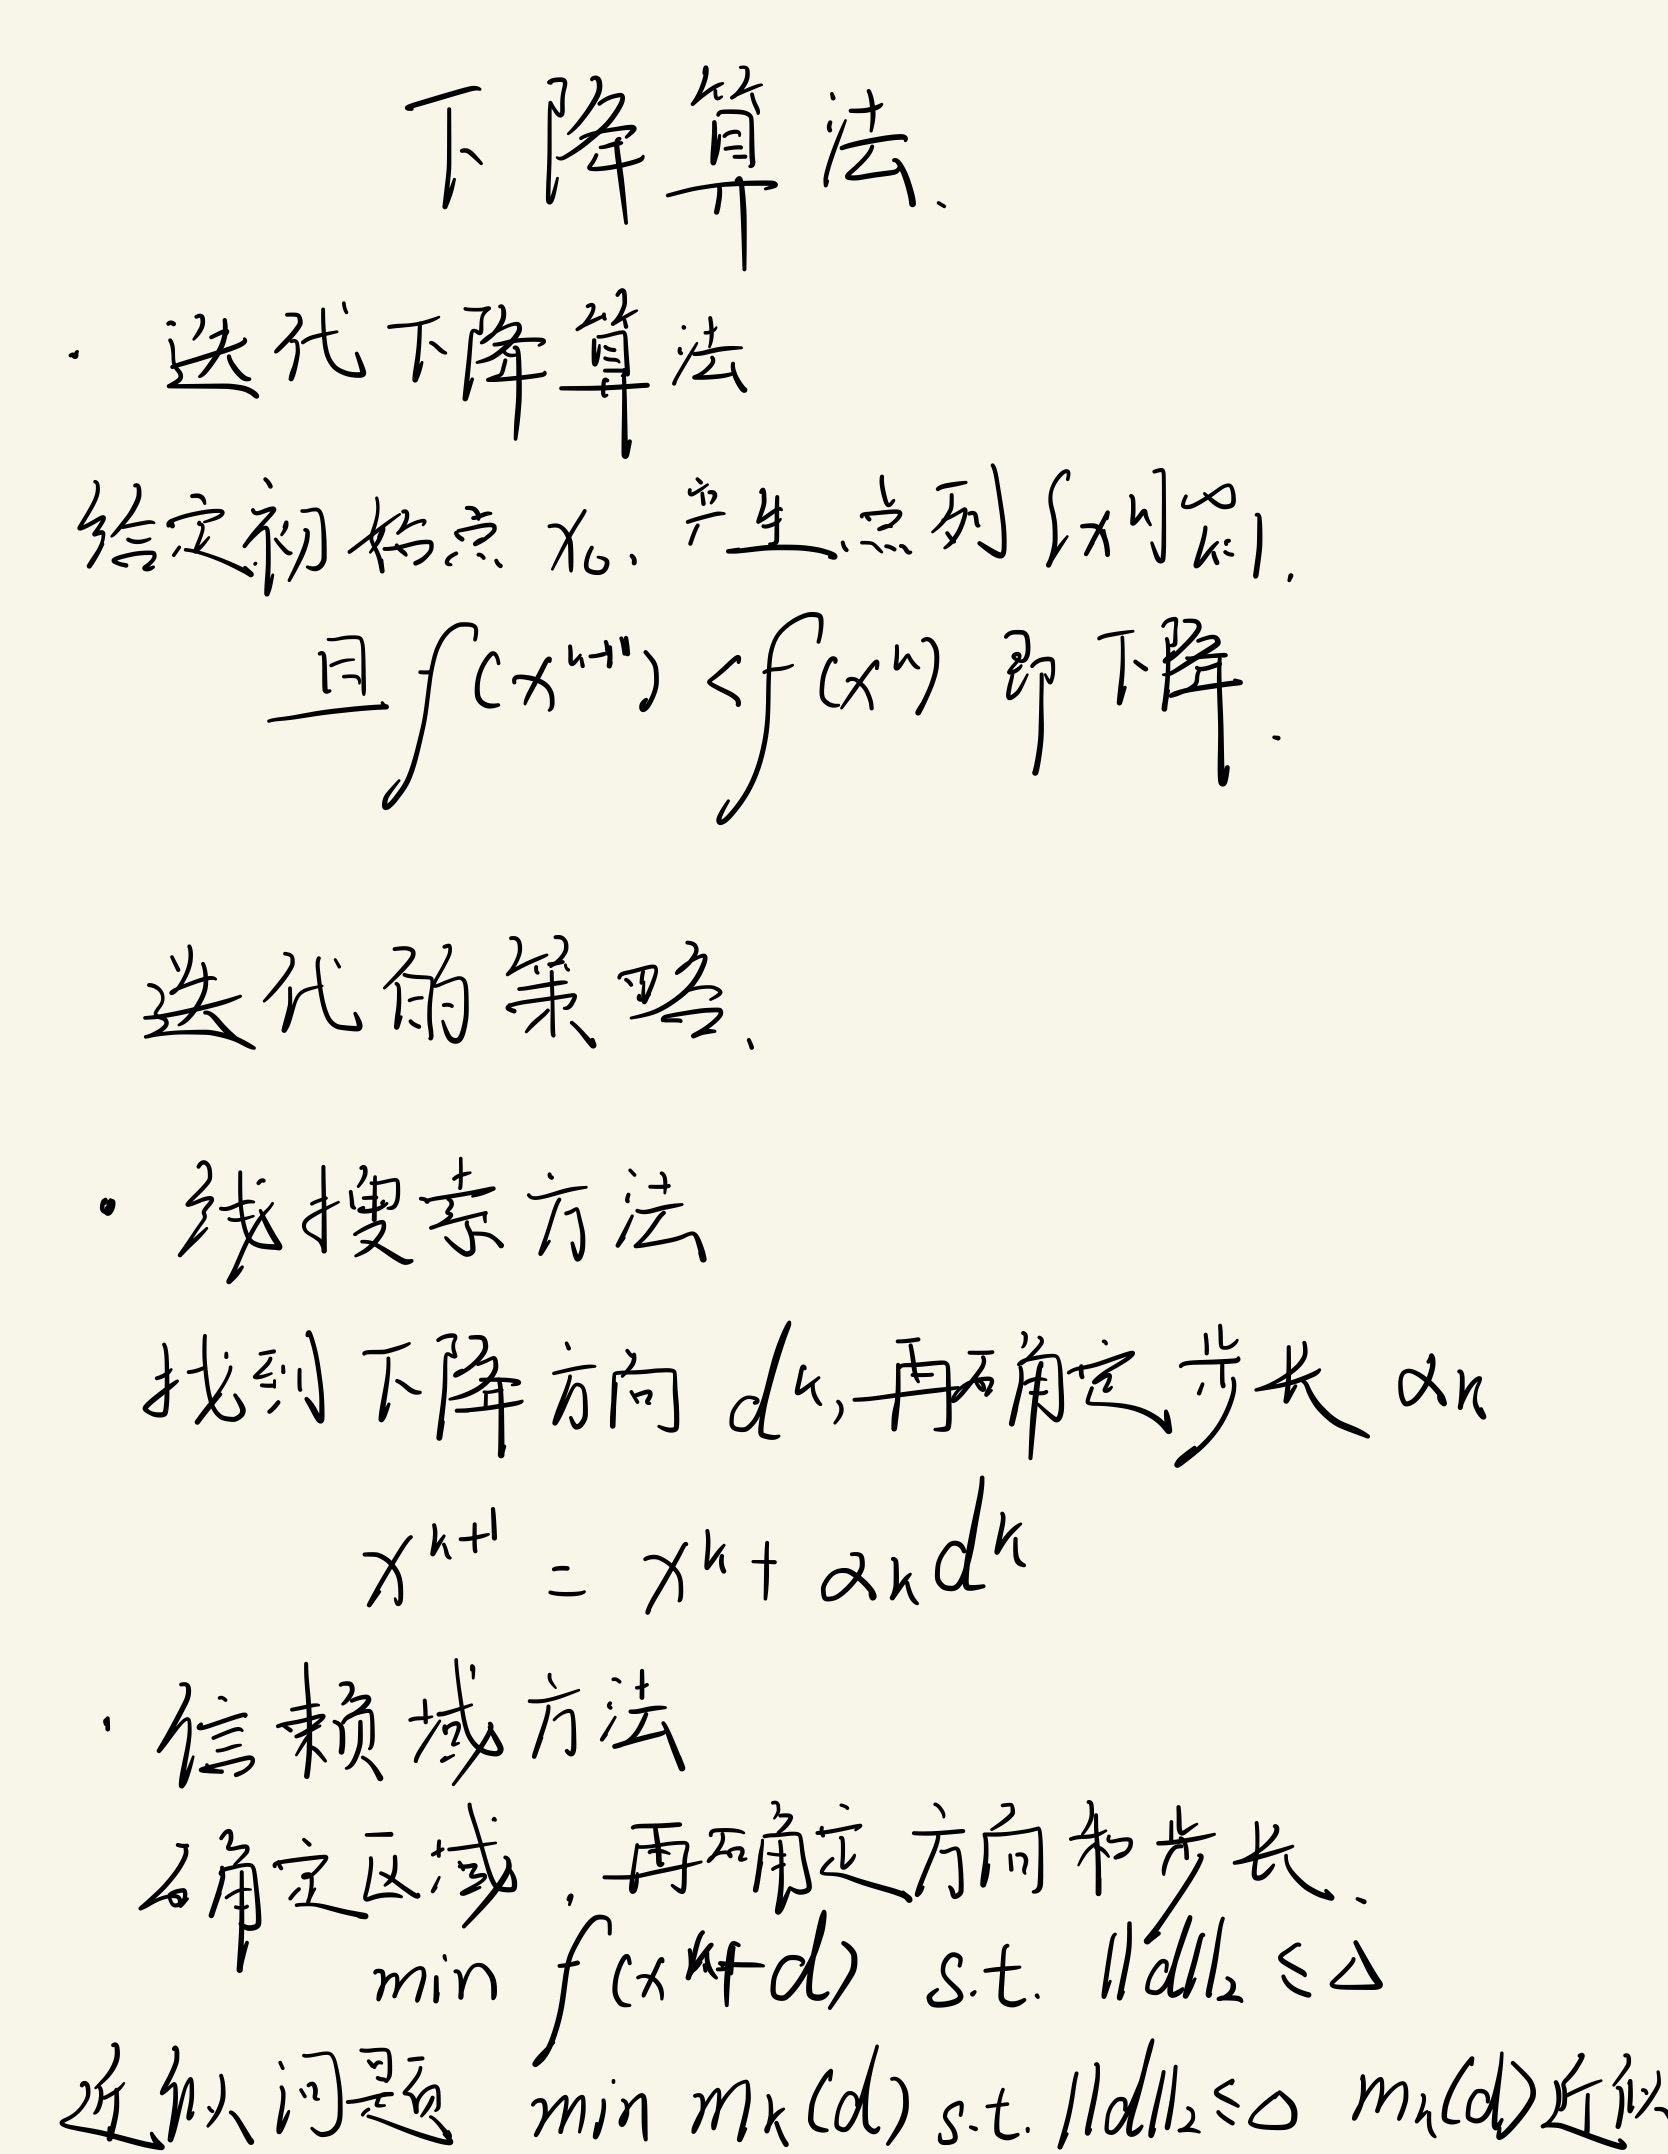 下降算法.
· 迭代下降算法
给定初始点 x₀. 产生点列 {xᵏ}∞k=1.
且 f(xᵏ⁺¹) < f(xᵏ) 即下降.
迭代的策略.
· 线搜索方法
找到下降方向 dᵏ, 再确定步长 αₖ
xᵏ⁺¹ = xᵏ + αₖdᵏ
· 信赖域方法
确定区域. 再确定方向和步长.
min f(xᵏ+d) s.t. ||d||₂ ≤ Δ
近似问题 min mₖ(d) s.t. ||d||₂ ≤ Δ mₖ(d)近似